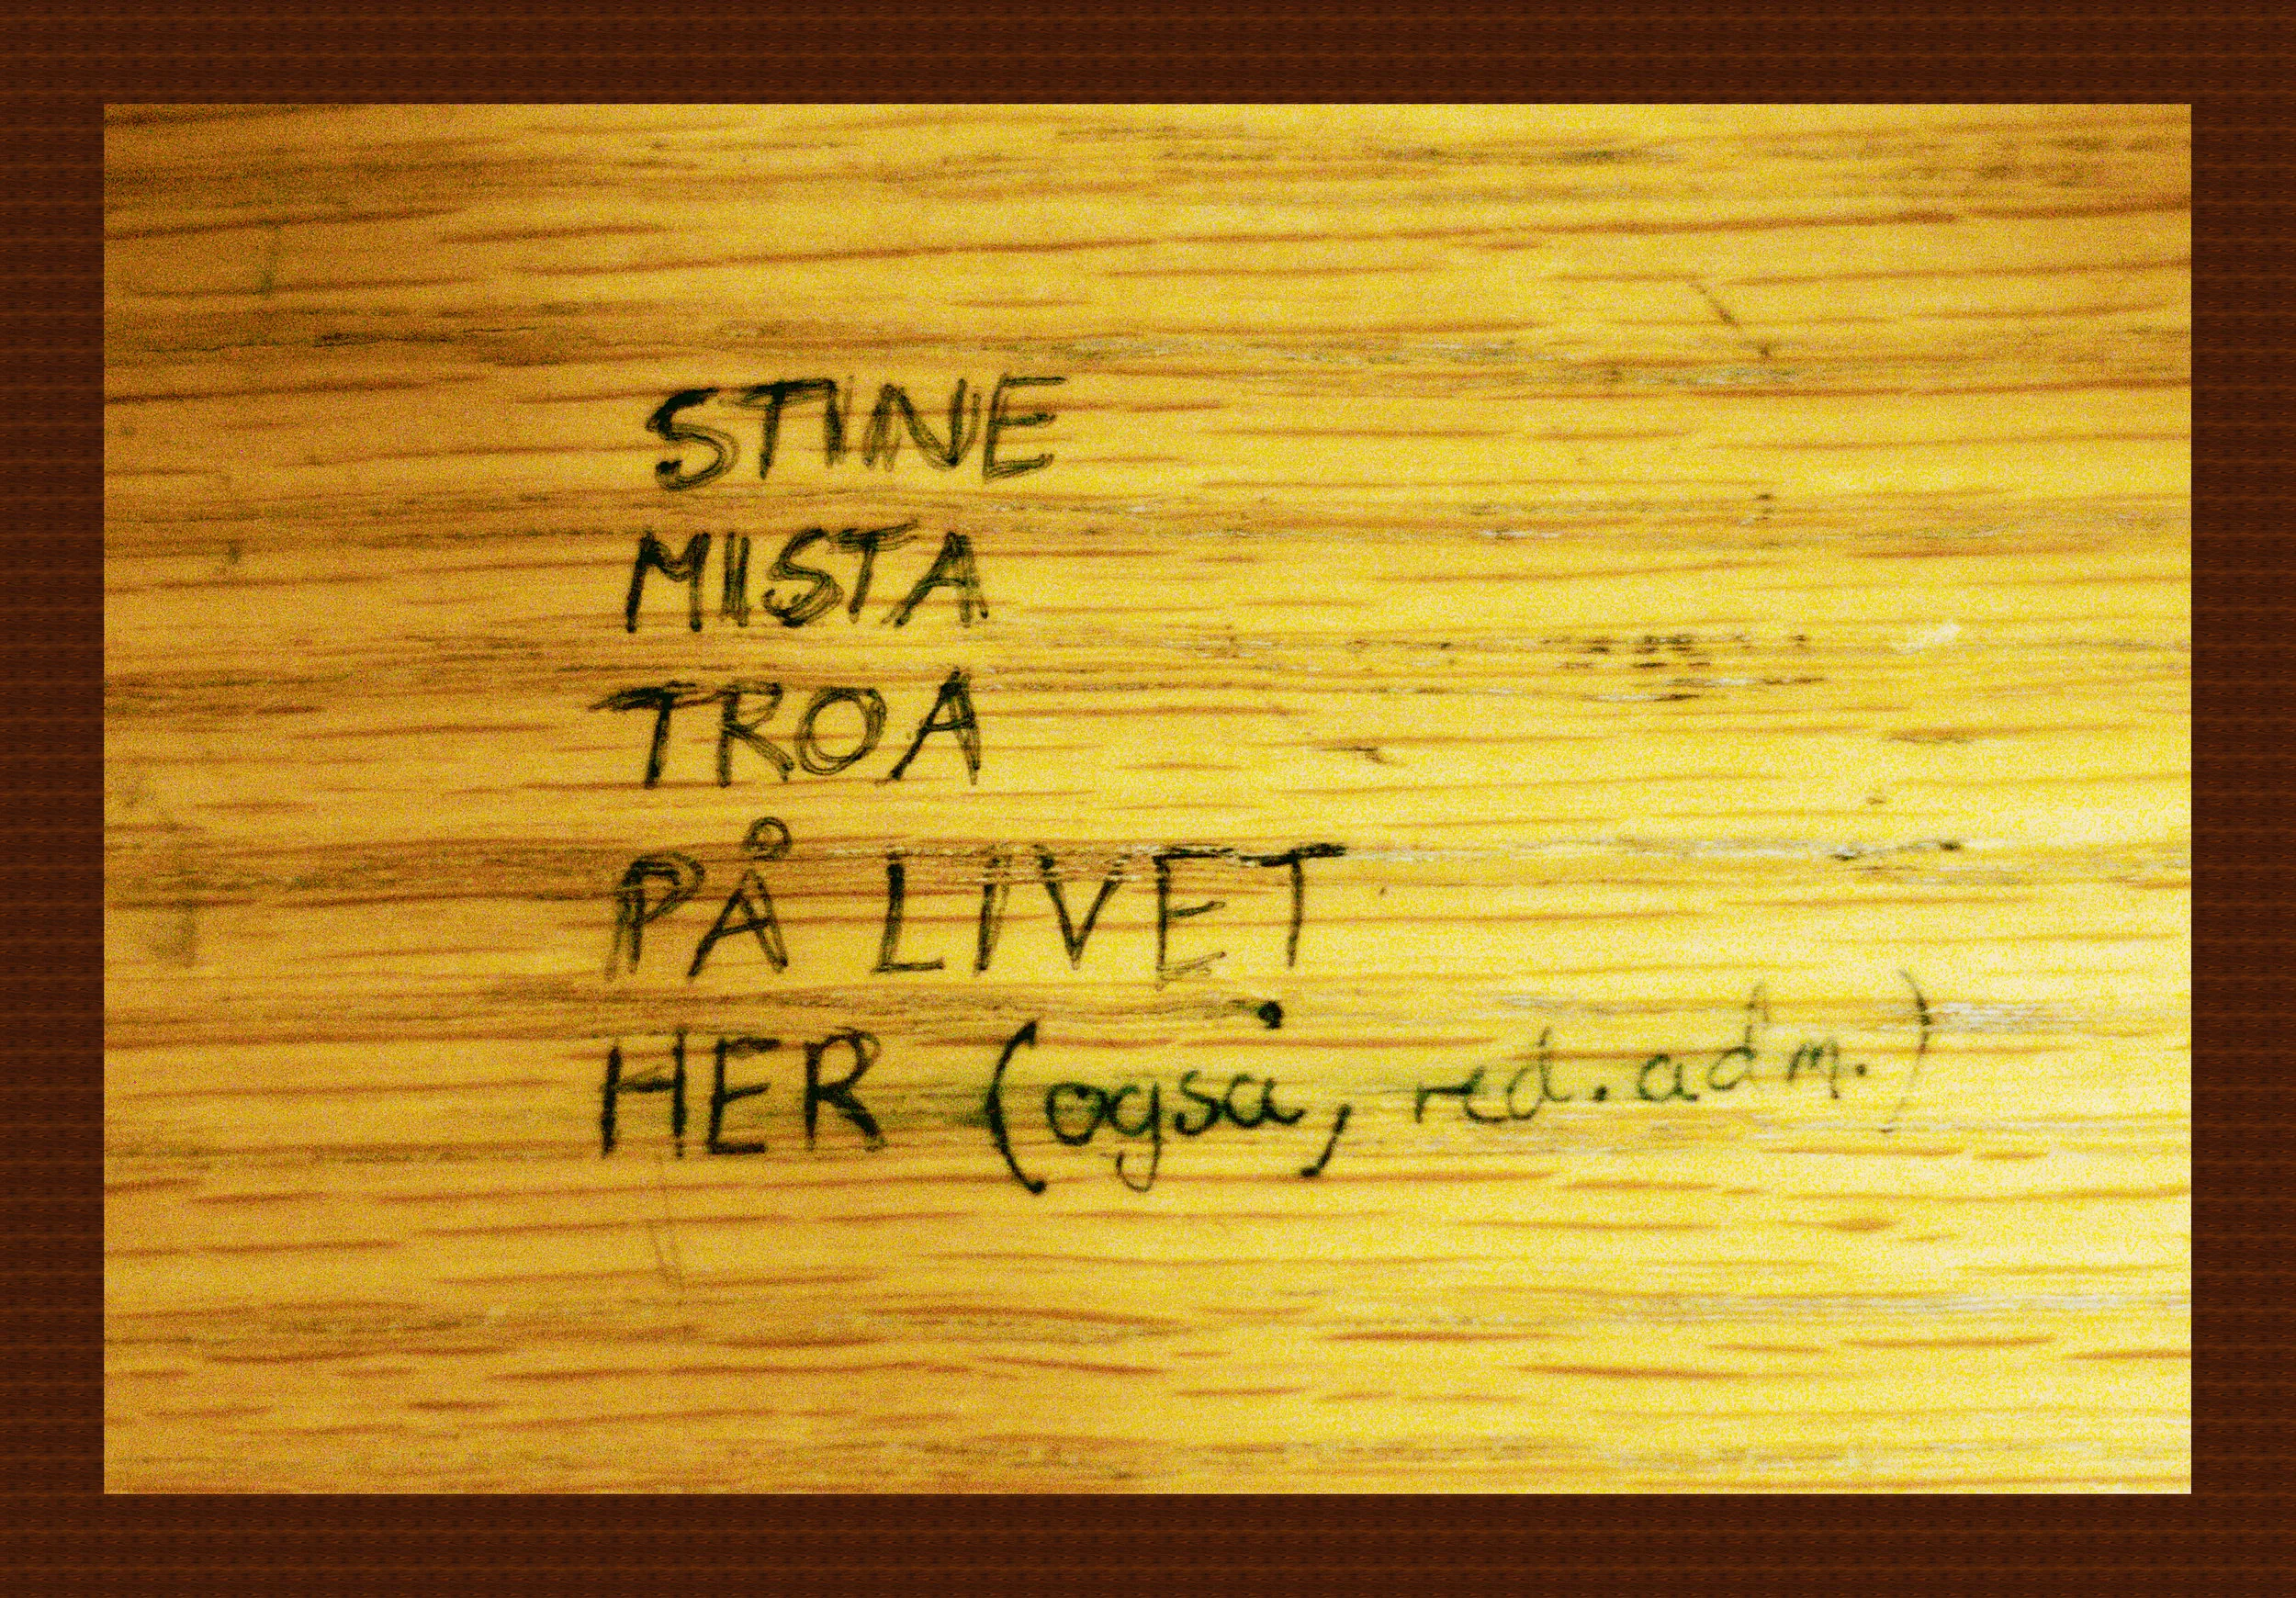 STINE
MISTA
TROA
PÅ LIVET
HER (også, red.adm.)